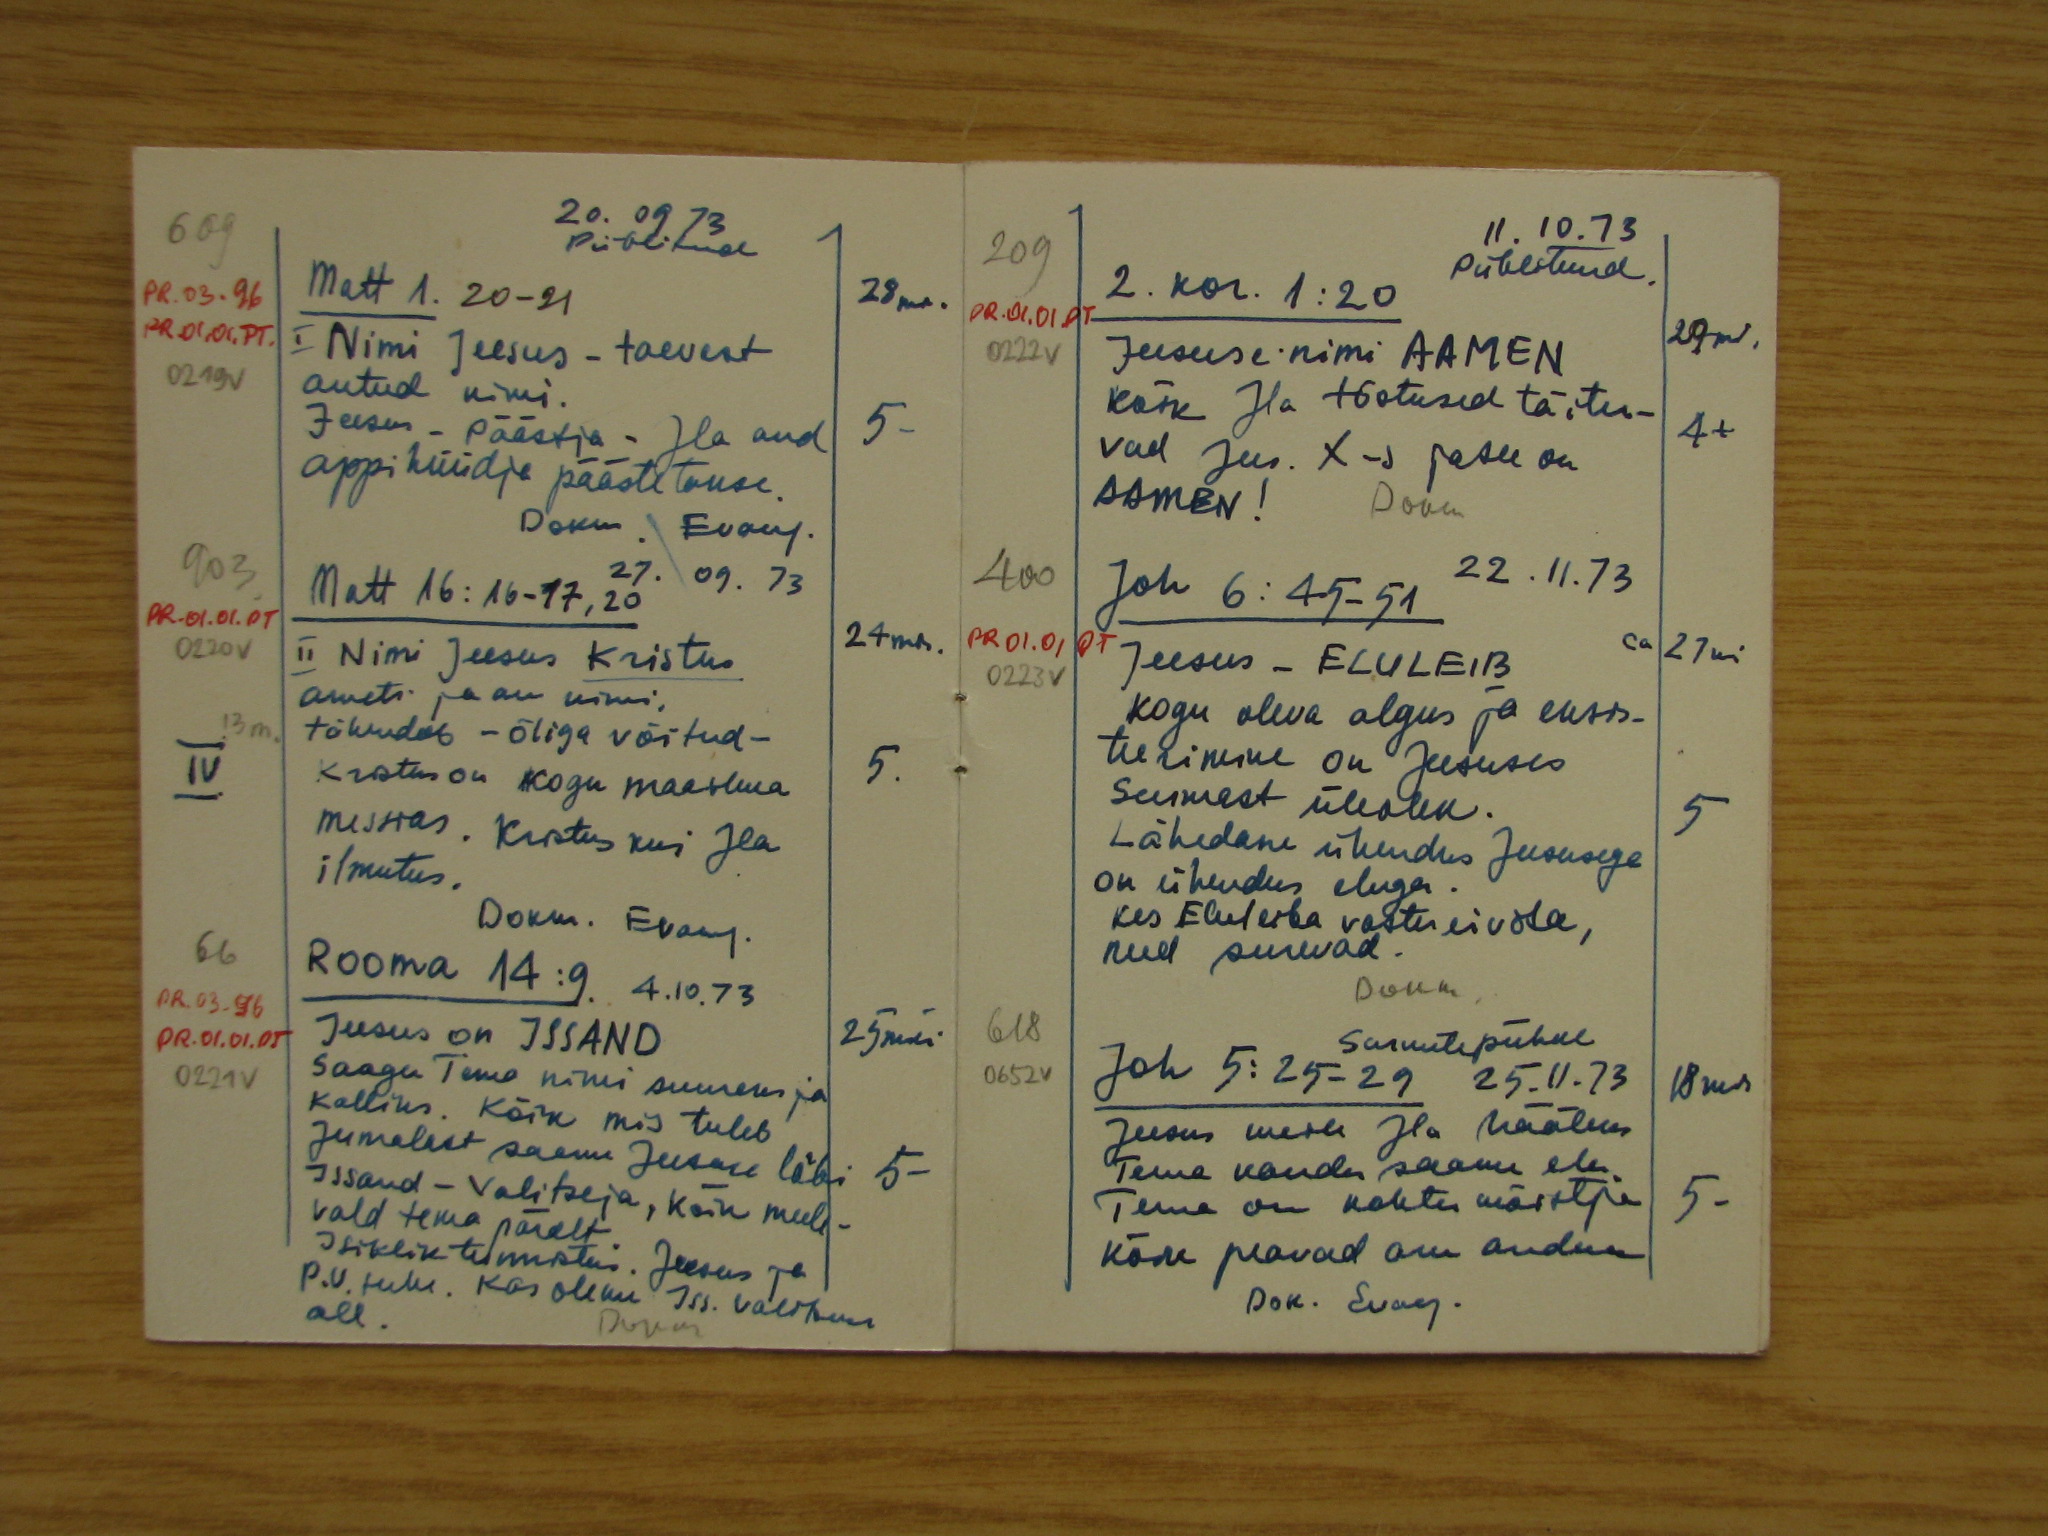 609
20. 09 73
Piiblitund
Matt 1. 20-21
28 min.
PR.03-96
PR.01.01.PT.
0219V
I Nimi Jeesus - taevast
antud nimi.
Jeesus - Päästja - Jla and
5-
appihüüdja päästetakse.
Dokm. Evang.
903
27. 09. 73
Matt 16: 16-17, 20
PR.01.01.PT
0220V
24 min.
II Nimi Jeesus Kristus
ameti ja au nimi,
13 m.
tähendab - õliga võitud-
IV
Kristus on kogu maailma
5.
messias. Kristus kui Jla
ilmutus.
Dokm. Evang.
66
Rooma 14:9. 4.10.73
PR.03-96
PR.01.01.PT
0221V
Jeesus on ISSAND
25 min
Saagu Tema nimi suureks ja
kalliks. Kõik mis tuleb
Jumalast saame Jeesuse läbi
5-
Issand - Valitseja, kõik meele-
vald tema päralt
Isiklik tunnistus. Jeesus ja
P.V. tule. Kas oleme Iss. valitsuse
all.
Dokm
209
11. 10.73
Piiblitund.
2. Kor. 1:20
PR.01.01.PT
0222V
29 mi.
Jeesuse nimi AAMEN
kõik Jla tõotused täitu-
4+
vad Jees. X-s ja see on
AAMEN!
Dokm
400
Joh 6: 45-51
22.11.73
PR.01.01 PT
0223V
ca 27 mi
Jeesus - ELULEIB
kogu oleva algus ja eksis-
teerimine on Jeesuses
Surnust ülesolek.
5
Lähedane ühendus Jeesusega
on ühendus eluga.
Kes Eluleiba vastu ei võta,
need surevad.
Dokm.
618
Surnutepühal
0652V
Joh 5: 25-29 25.11.73
18 min
Jeesus meile Jla hääleks
Tema kaudu saame elu.
Tema on kohtumõistja
5-
kõik peavad aru andma
Dok. Evang.